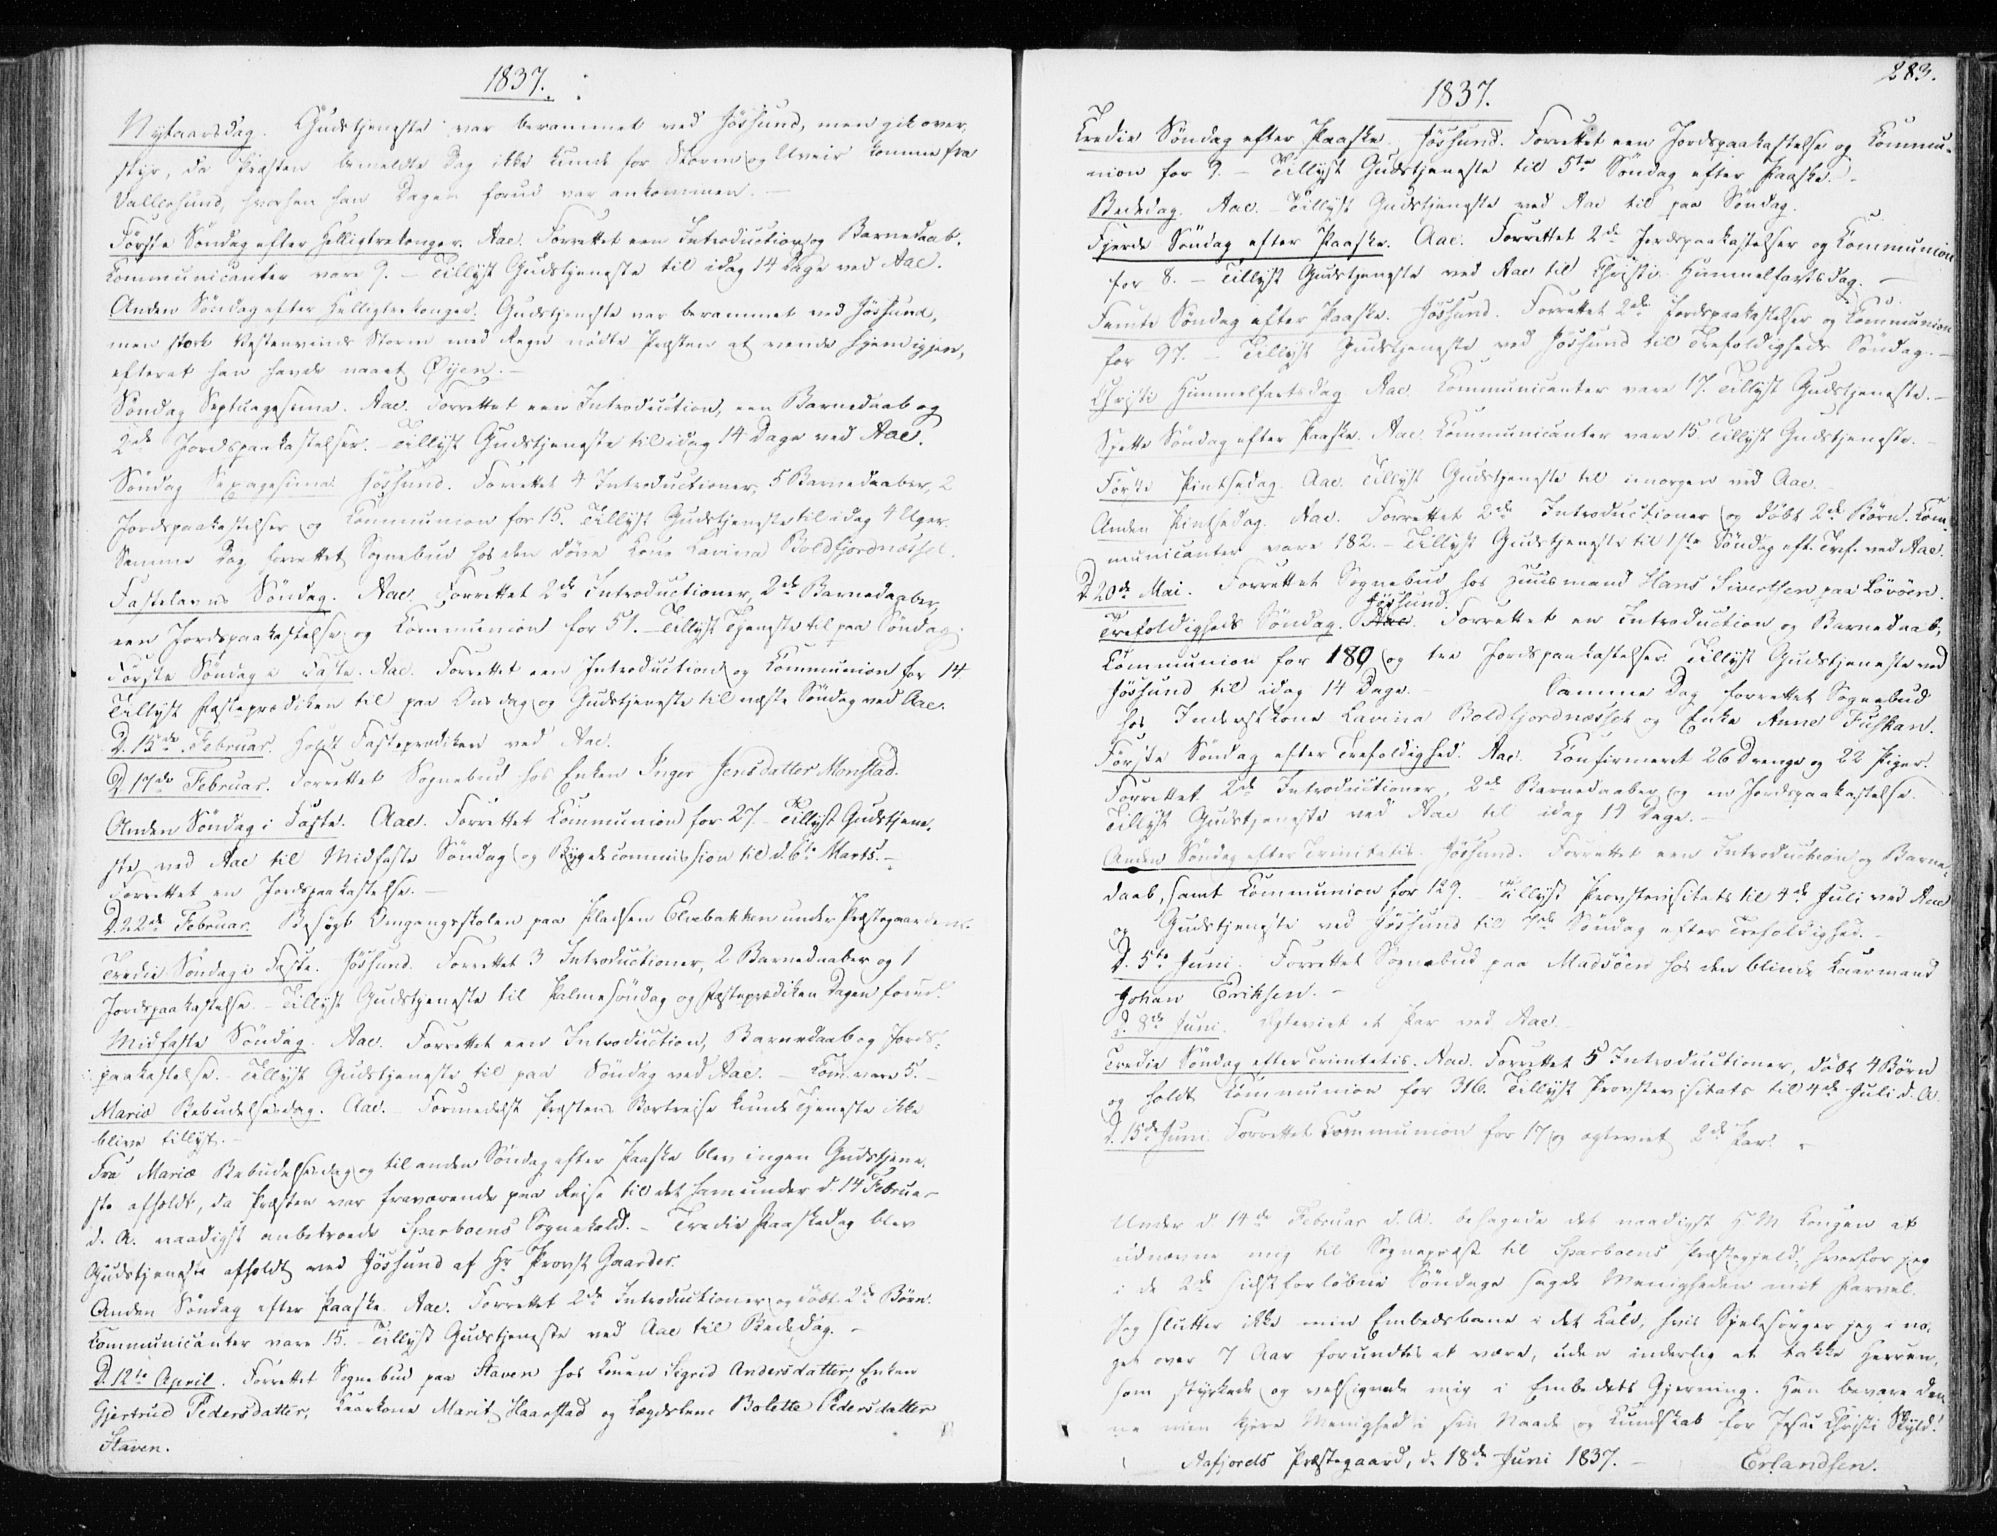 1837.
Nytaarsdag. Gudstjeneste var berammet ved Jössund, men gik over
styr, da Præsten bemeldte Dag ikke kunde for Storm og Uveir komme fra
Vallersund, hvorhen han Dagen forud var ankommen. -
Første Søndag efter Helligtrekonger. Aae. Forrettet een Introduction og Barnedaab.
Communicanter vare 9. - Tillyst Gudstjeneste til idag 14 Dage ved Aae.
Anden Søndag efter Helligtrekonger. Gudstjeneste var berammet ved Jössund,
men stærk Vestenvinds Storm med Regn nødte Præsten at vende hjem igjen,
efterat han havde naaet Øyen. -
Søndag Septuagesima. Aae. Forrettet een Introduction, een Barnedaab og
2de Jordspaakastelser. - Tillyst Gudstjeneste til idag 14 Dage ved Aae.
Søndag Sexagesima. Jössund. Forrettet 4 Introductioner, 5 Barnedaaber, 2
Jordspaakastelser og Communion for 15. Tillyst Gudstjeneste til idag 4 Uger.
Samme Dag forrettet Sognebud hos den Kone Lavina Boldfjordnæsset.
Fastelavns Søndag. Aae. Forrettet 2de Introductioner, 2de Barnedaaber,
een Jordspaakastelse og Communion for 51. - Tillyst Tjeneste til paa Søndag.
Første Søndag i Faste. Aae. Forrettet een Introduction og Communion for 14
Tillyst Fasteprædiken til paa Onsdag og Gudstjeneste til næste Søndag ved Aae.
D. 15de Februar. Holdt Fasteprædiken ved Aae.
D. 17de Februar. Forrettet Sognebud hos Enken Inger Jensdatter Monstad.
Anden Søndag i Faste. Aae. Forrettet Communion for 27. - Tillyst Gudstjene-
ste ved Aae til Midfaste Søndag og commission til d. 6te Marts. -
Forrettet en Jordspaakastelse. -
D. 22de Februar. Besøgt Omgangsskolen paa Pladsen Elvebakken under Præstegaarden.
Tredie Søndag i Faste. Jössund. Forrettet 3 Introductioner, 2 Barnedaaber og 1
Jordspaakastelse. - Tillyst Gudstjeneste til Palmesøndag og Fasteprædiken Dagen forud.
Midfaste Søndag. Aae. Forrettet een Introduction, Barnedaab og Jords-
paakastelse. - Tillyst Gudstjeneste til paa Søndag ved Aae. - Com. vare 5. -
Mariæ Bebudelsesdag. Aae. Formedelst Præstens Bortreise kunde Tjeneste ikke
blive tillyst. -
Fra Mariæ Bebudelsesdag og til anden Søndag efter Paaske blev ingen Gudstjene-
ste afholdt, da Præsten var fraværende paa Reise til det ham under d. 14 Februar
d. A. naadigst anbetroede Sparboens Sognekald. - Tredie Paaskedag blev
Gudstjeneste afholdt ved Jössund af Hr Provst Gaarder.
Anden Søndag efter Paaske. Aae. Forrettet 2de Introductioner og døbt 2de Børn.
Communicanter vare 15. - Tillyst Gudstjeneste ved Aae til Bededag. -
D. 12te April. Forrettet Sognebud paa Staven hos Konen Sigrid Andersdatter, Enken
Gjertrud Pedersdatter, Kaarkone Marit Haarstad og Lægdslem Bolette Pedersdatter
Staven.
283.
1837.
Tredie Søndag efter Paaske. Jössund. Forrettet een Jordspaakastelse og Commu-
nion for 9. - Tillyst Gudstjeneste til 5te Søndag efter Paaske. -
Bededag. Aae. - Tillyst Gudstjeneste ved Aae til paa Søndag.
Fjerde Søndag efter Paaske. Aae. Forrettet 2de Jordspaakastelser og Communion
for 8. - Tillyst Gudstjeneste ved Aae til Christi Himmelfartsdag. -
Femte Søndag efter Paaske. Jössund. Forrettet 2de Jordspaakastelser og Communion
for 97. - Tillyst Gudstjeneste ved Jössund til Trefoldigheds Søndag. -
Christi Himmelfartsdag Aae. Communicanter vare 17. Tillyst Gudstjeneste. -
Sjette Søndag efter Paaske. Aae. Communicanter vare 15. Tillyst Gudstjeneste. -
Første Pintsedag. Aae. Tillyst Gudstjeneste til imorgen ved Aae.
Anden Pintsedag. Aae. Forrettet 2de Introductioner og døbt 2de Børn. Com-
municanter vare 182. - Tillyst Gudstjeneste til 1ste Søndag eft. Tref. ved Aae.
D. 20de Mai. Forrettet Sognebud hos Huusmand Hans Sivertsen paa Lövöen.
Trefoldigheds Søndag. Jössund. Forrettet en Introduction og Barnedaab,
Communion for 189 og tre Jordspaakastelser. Tillyst Gudstjeneste ved
Jössund til idag 14 Dage. - Samme Dag forrettet Sognebud
hos Inderstkone Lavina Boldfjordnæsset og Enke Anne Fuskan.
Første Søndag efter Trefoldighed. Aae. Confirmeret 26 Drenge og 22 Piger.
Forrettet 2de Introductioner, 2de Barnedaaber og en Jordspaakastelse.
Tillyst Gudstjeneste ved Aae til idag 14 Dage. -
Anden Søndag efter Trinitatis. Jössund. Forrettet een Introduction og Barne-
daab, samt Communion for 129. - Tillyst Provstevisitats til 4de Juli ved Aae
og Gudstjeneste ved Jössund til 7de Søndag efter Trefoldighed. -
D. 5te Juni. Forrettet Sognebud paa Madsöen hos den blinde Kaarmand
Johan Eriksen. -
D. 8de Juni. Egteviet et Par ved Aae.
Tredie Søndag efter Trinitatis. Aae. Forrettet 5 Introductioner, døbt 4 Børn
og holdt Communion for 316. Tillyst Provstevisitats til 4de Juli d. A.
D. 15de Juni. Forrettet Communion for 17 og egteviet 2de Par. -
Under d. 14de Februar d. A. behagede det naadigst H M Kongen at
udnævne mig til Sognepræst til Sparboens Præstegjeld, hvorfor jeg
i de 2de sidst forløbne Søndage sagde Menigheden mit Farvel.
Jeg slutter ikke min Embedsbane i det Kald, hvis Sjelesørger jeg i no-
get over 7 Aar forundtes at være, uden inderlig at takke Herren,
som styrkede og velsignede mig i Embedets Gjerning. Han bevare den-
ne min kjere Menighed i sin Naade og Kundskab for Jesu Christi Skyld!
Aafjords Præstegaard, d. 18de Juni 1837. - Erlandsen.